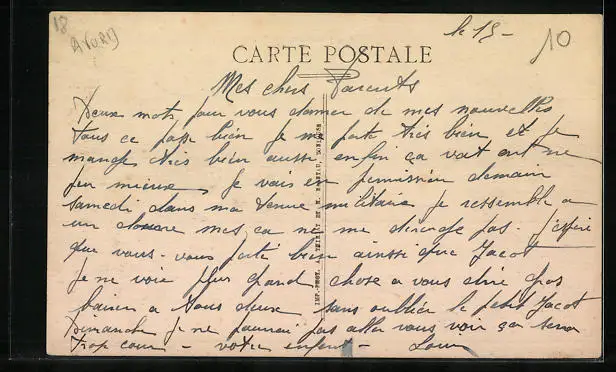 18
AVORD
le 15 -
10
CARTE POSTALE
Mes chers Parents
Deux mots pour vous donner de mes nouvelles
tous ce passe bien je me porte très bien et je
mange très bien aussi enfin ça vat on ne
peu mieux, je vais en permission demain
samedi dans ma tenue militaire je ressemble a
un mes ça ne me dérange pas. j'espère
que vous - vous porté bien ainsi que Jacot
je ne voie plus grand chose a vous dire gros
baiser a tous deux sans oublier le petit Jacot
Dimanche je ne pourrai pas aller vous voir ça sera
trop cour - votre enfant -
IMP.-PHOT. A. THIRIET DE